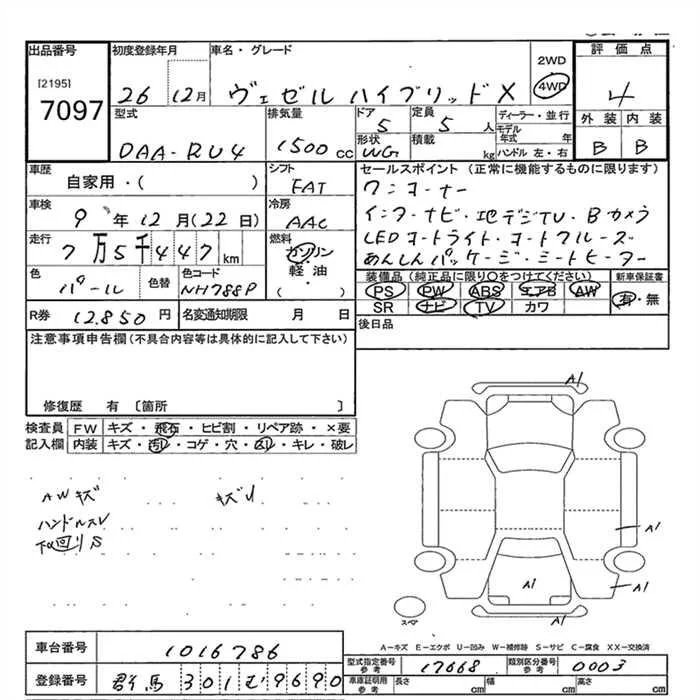 出品番号 初度登録年月 車名・グレード 評価点
[2195]
7097
26 12月 ヴェゼル ハイブリッド X
2WD
4WD
4
型式 DAA-RU4
排気量 1500 cc
ドア 5
定員 5 人
形状 WG
積載 kg
ディーラー・並行
モデル年式 年
ハンドル 左・右
外装 内装
B B
車歴 自家用・( )
シフト FAT
セールスポイント (正常に機能するものに限ります)
ワンオーナー
インターナビ・地デジTV・Bカメラ
LEDオートライト・オートクルーズ
あんしんパッケージ・シートヒーター
車検 9年12月(22日)
冷房 AAC
走行 7万5千447 km
燃料 ガソリン・軽油・( )
色 パール
色替
色コード NH788P
装備品 (純正品に限り○をつけてください)
PS PW ABS エアB AW
SR ナビ TV カワ
新車保証書
有・無
R券 12.850 円
名変通知期限 月 日
後日品
注意事項申告欄(不具合内容等は具体的に記入して下さい)
修復歴 有 〔箇所 〕
検査員記入欄
FW キズ・飛石・ヒビ割・リペア跡・×要
内装 キズ・汚レ・コゲ・穴・凹・キレ・破レ
AWキズ
ハンドルスレ
下回りS
A1
A1
A1
A1
スペア
A-キズ E-エクボ U-凹み W-補修跡 S-サビ C-腐食 XX-交換済
車台番号 1016786
登録番号 群馬 301 む 9690
型式指定番号 参考 17668
類別区分番号 参考 0003
車庫証明用 参考 長さ cm 幅 cm 高さ cm